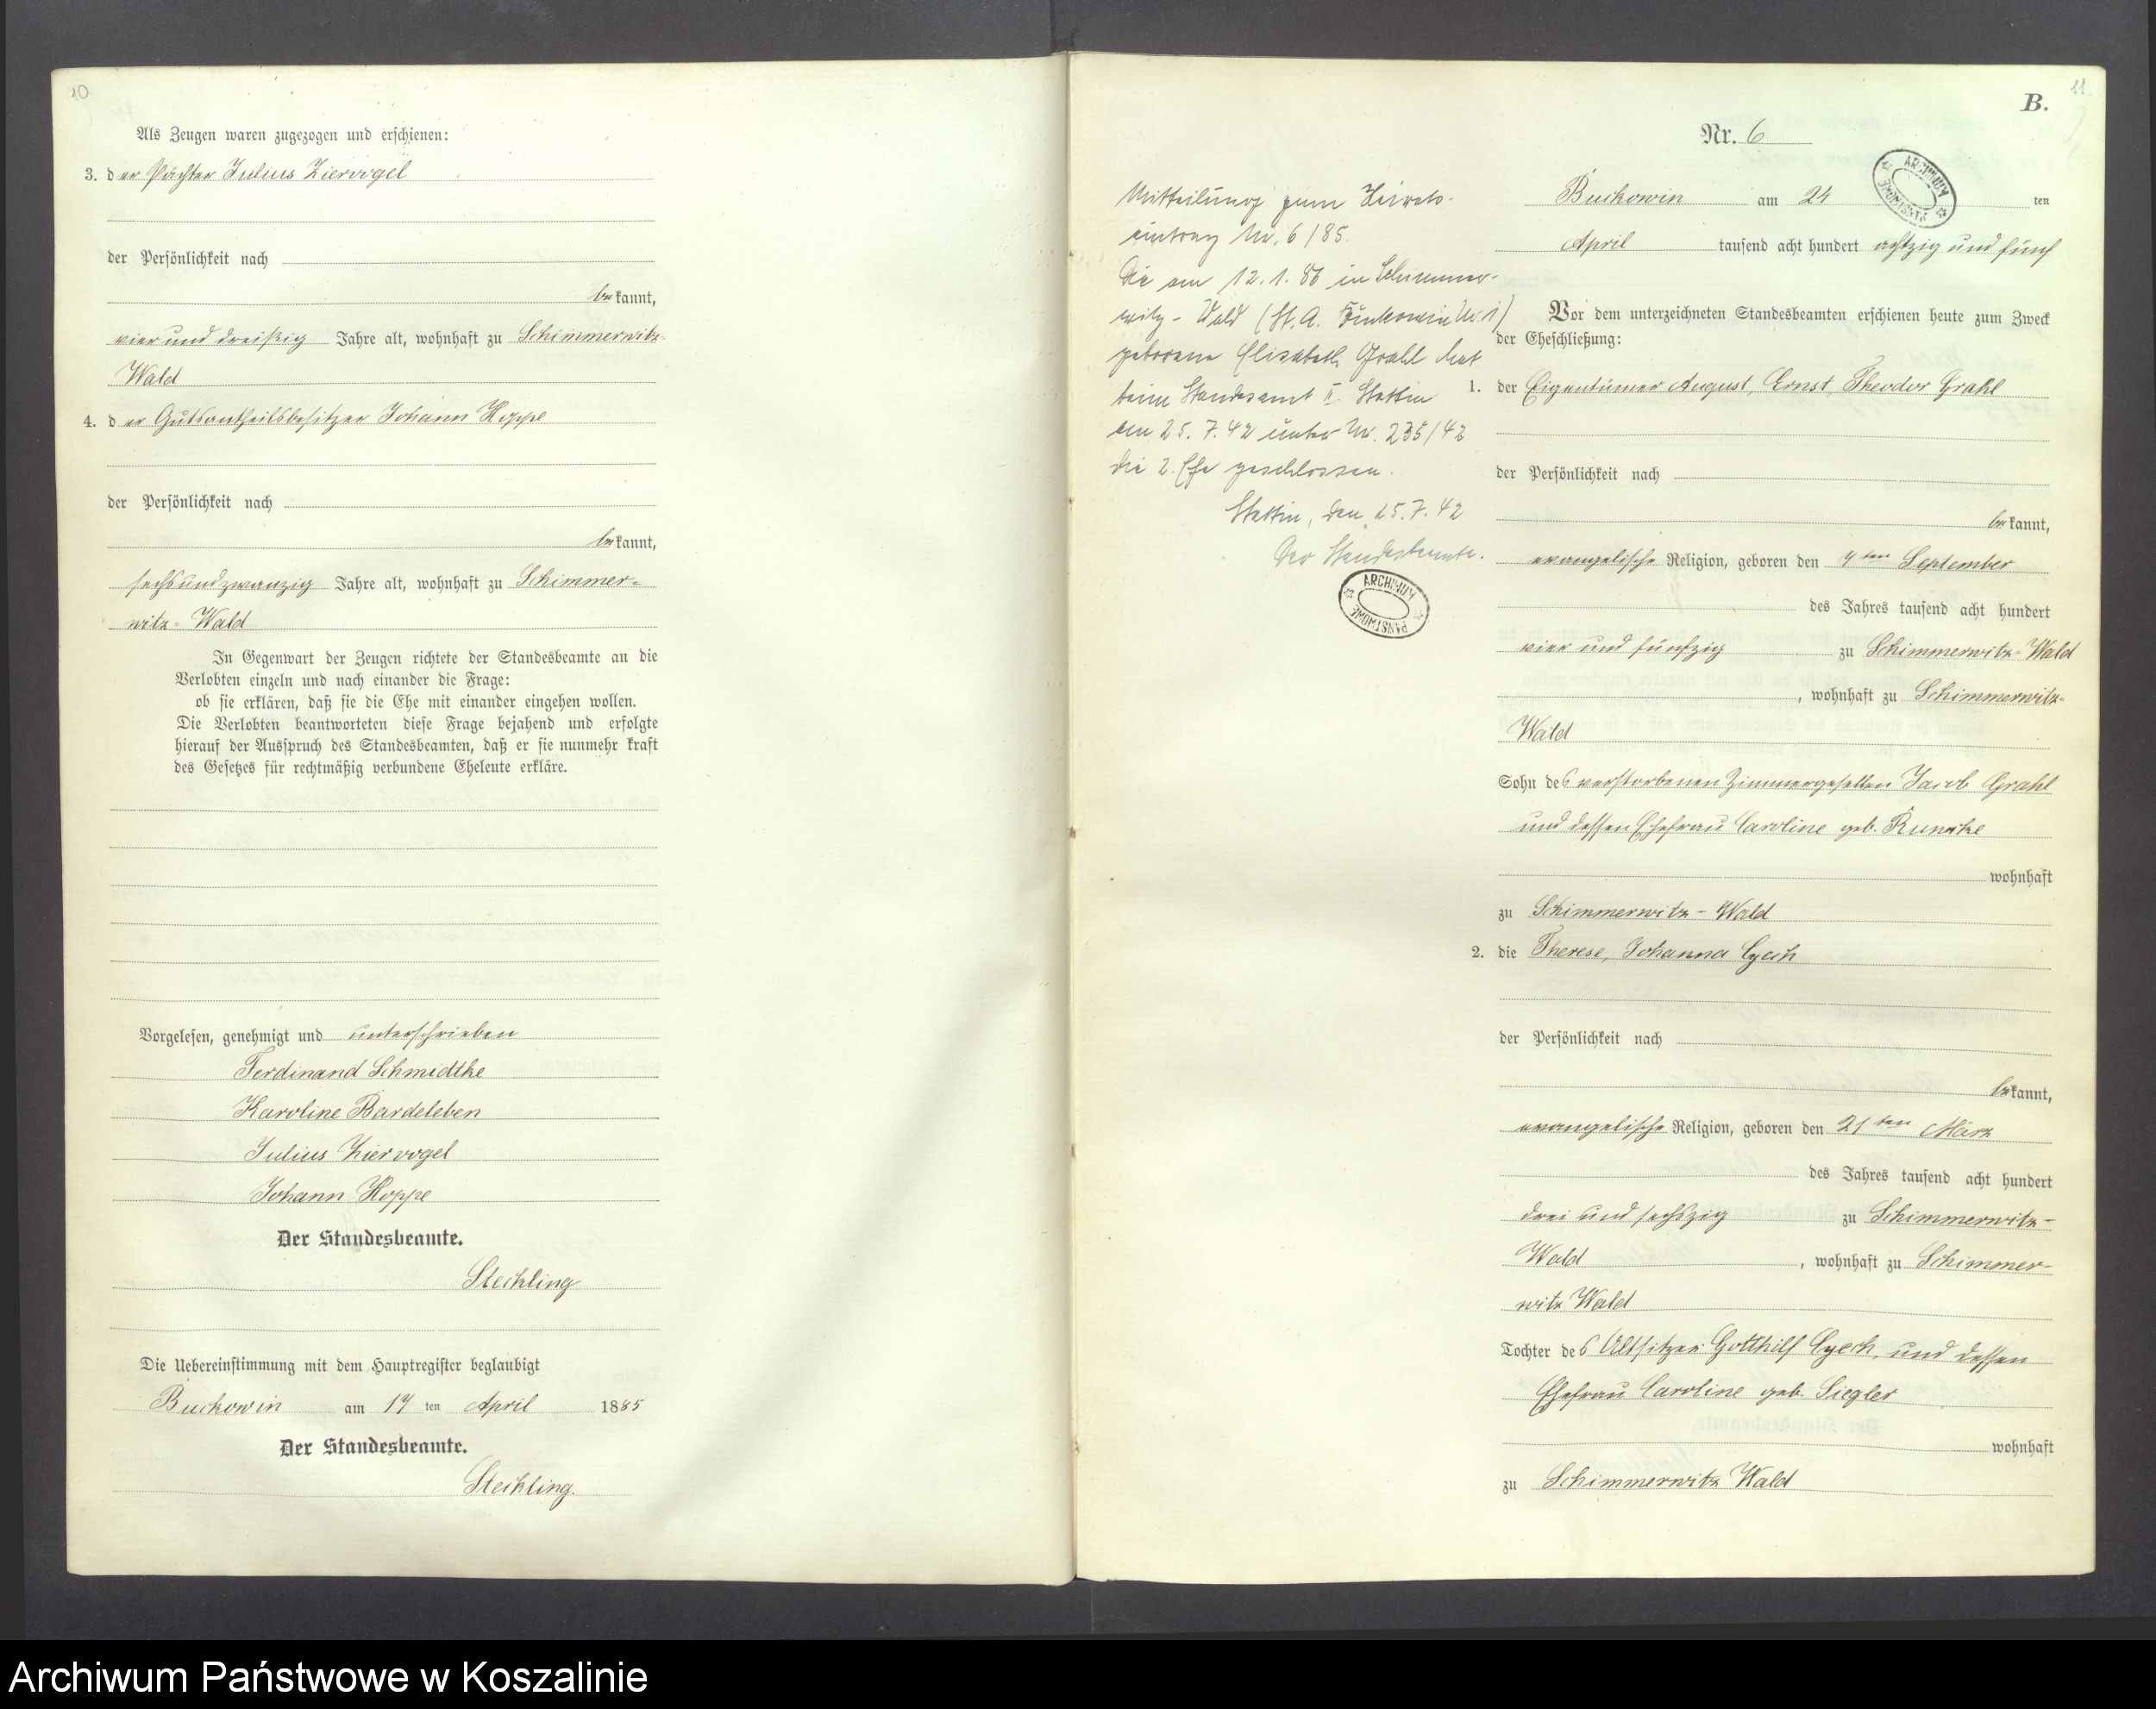 10
Als Zeugen waren zugezogen und erschienen:
3. der Pächter Julius Ziervogel
der Persönlichkeit nach
bekannt,
vier und dreißig Jahre alt, wohnhaft zu Schimmerwitz-
Wald
4. der Gutsantheilsbesitzer Johann Hoppe
der Persönlichkeit nach
bekannt,
sechs und zwanzig Jahre alt, wohnhaft zu Schimmer-
witz-Wald
In Gegenwart der Zeugen richtete der Standesbeamte an die
Verlobten einzeln und nach einander die Frage:
ob sie erklären, daß sie die Ehe mit einander eingehen wollen.
Die Verlobten beantworteten diese Frage bejahend und erfolgte
hierauf der Ausspruch des Standesbeamten, daß er sie nunmehr kraft
des Gesetzes für rechtmäßig verbundene Eheleute erkläre.
Vorgelesen, genehmigt und unterschrieben
Ferdinand Schmidtke
Karoline Bardeleben
Julius Ziervogel
Johann Hoppe
Der Standesbeamte.
Steckling
Die Uebereinstimmung mit dem Hauptregister beglaubigt
Buckowin am 14 ten April 1885
Der Standesbeamte.
Steckling.
11
B.
Nr. 6
ARCHIWUM PAŃSTWOWE
Buckowin am 24 ten
April tausend acht hundert achtzig und fünf
Vor dem unterzeichneten Standesbeamten erschienen heute zum Zweck
der Eheschließung:
1. der Eigentümer August, Ernst, Theodor Grahl
der Persönlichkeit nach
bekannt,
evangelische Religion, geboren den 4ten September
des Jahres tausend acht hundert
vier und fünfzig zu Schimmerwitz-Wald
, wohnhaft zu Schimmerwitz-
Wald
Sohn des verstorbenen Zimmergesellen Jacob Grahl
und dessen Ehefrau Caroline geb.
wohnhaft
zu Schimmerwitz-Wald
2. die Therese, Johanna Czech
der Persönlichkeit nach
bekannt,
evangelische Religion, geboren den 21ten März
des Jahres tausend acht hundert
drei und sechszig zu Schimmerwitz-
Wald , wohnhaft zu Schimmer-
witz Wald
Tochter des Altsitzer Gotthilf Czech, und dessen
Ehefrau Caroline geb. Siegler
wohnhaft
zu Schimmerwitz Wald
Mitteilung zum Heirats-
eintrag Nr. 6/85.
Die am 12.1.86 in Schimmer-
witz-Wald (St. A. Buckowin Nr. 1)
geborene Elisabeth Grahl hat
beim Standesamt II Stettin
am 25.7.42 unter Nr. 235/42
die 2. Ehe geschlossen.
Stettin, den 25.7.42
Der Standesbeamte.
ARCHIWUM PAŃSTWOWE
Archiwum Państwowe w Koszalinie